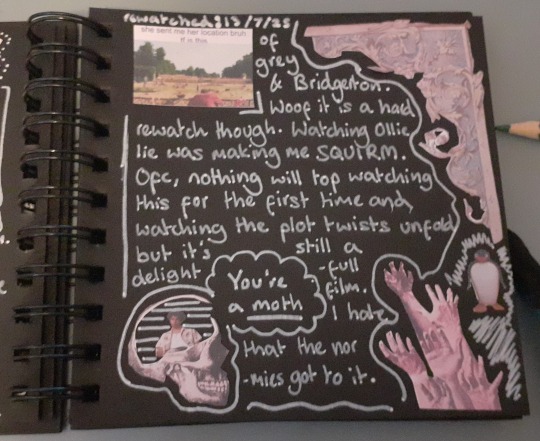 rewatched: 13/7/25
she sent me her location bruh
tf is this
of
grey
& Bridgerton.
Woof it is a hard
rewatch though. Watching Ollie
lie was making me SQUIRM.
Ofc, nothing will top watching
this for the first time and
watching the plot twists unfold
but it's still a
delight-full
film. I hate
that the nor
-mies got to it.
You're
a moth